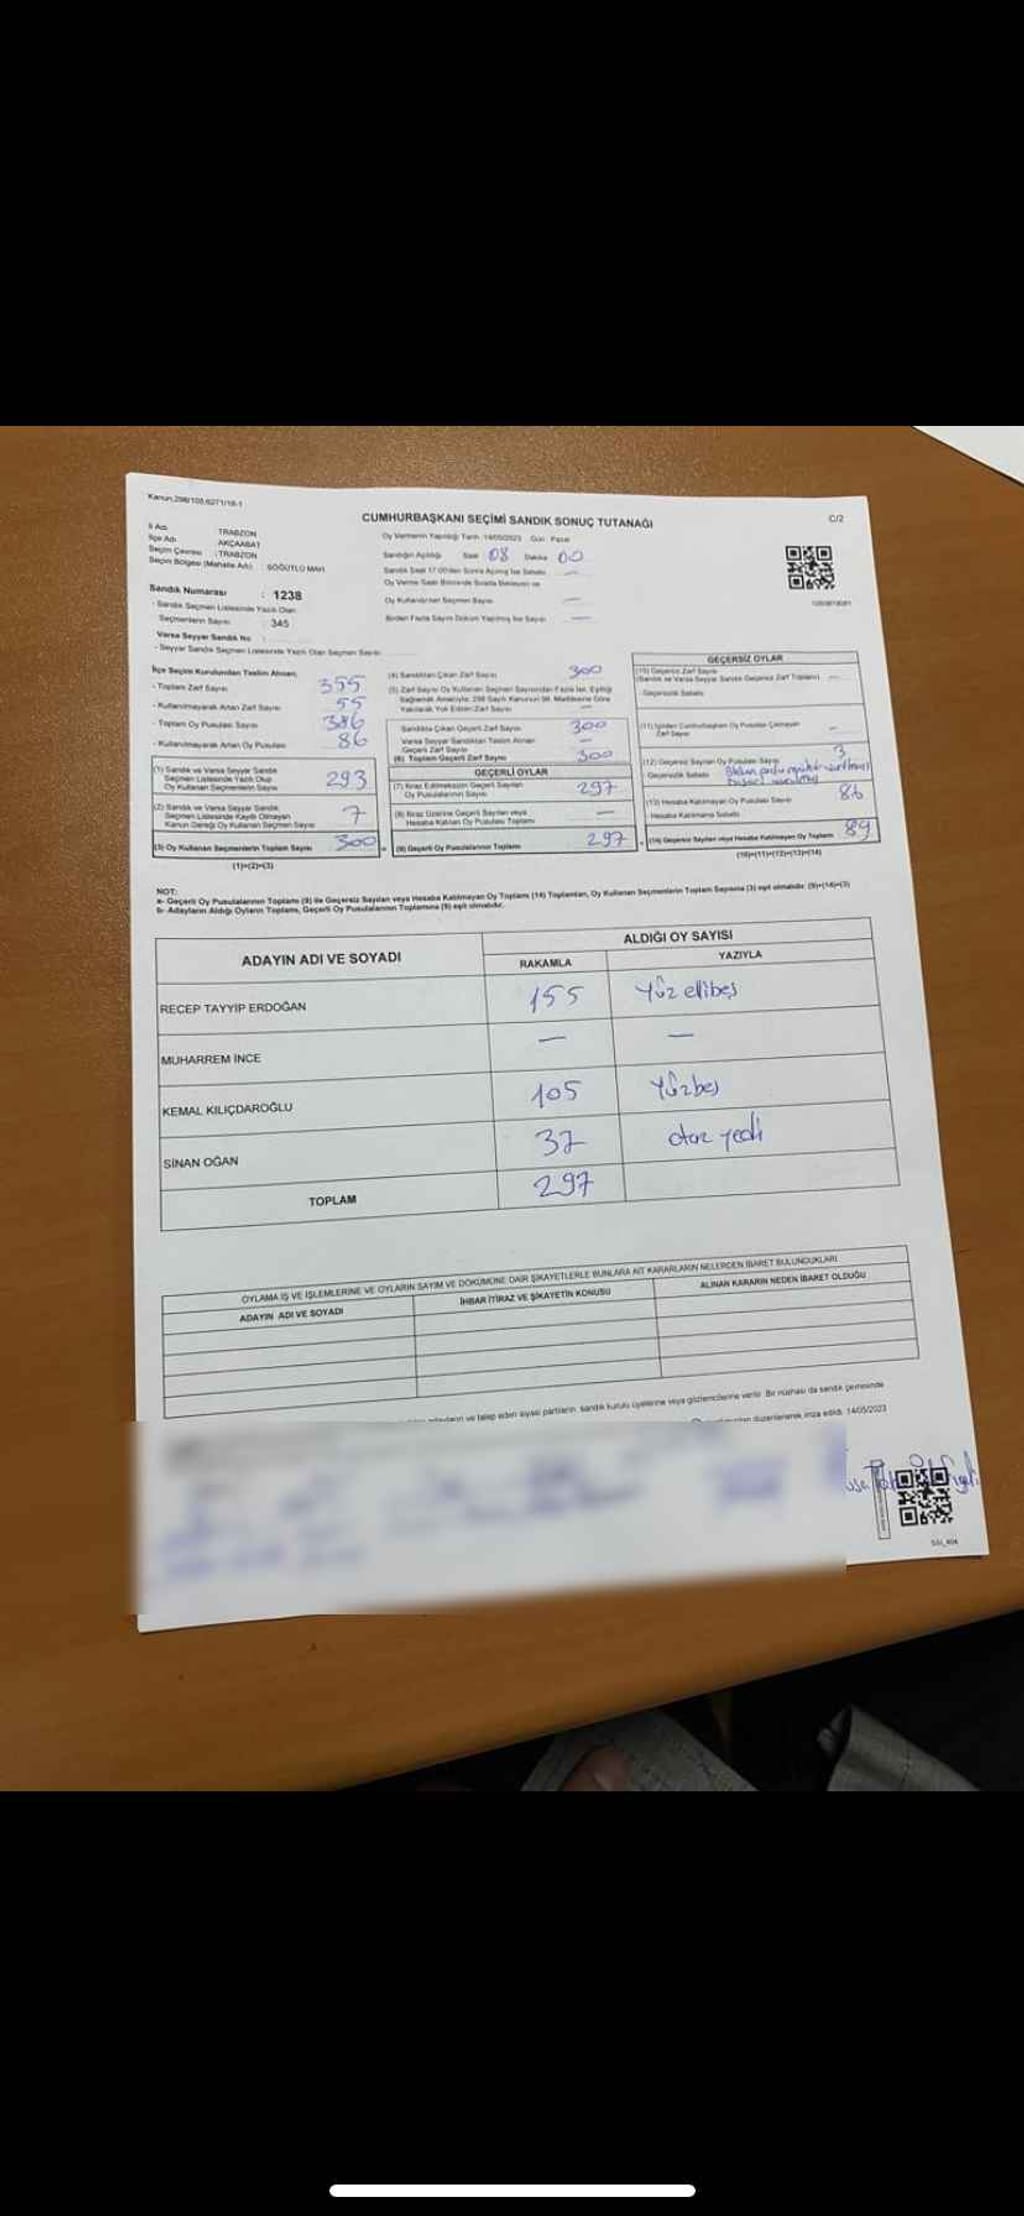 Kanun,298/105,6271/18-1
CUMHURBAŞKANI SEÇİMİ SANDIK SONUÇ TUTANAĞI
C/2
İl Adı : TRABZON
İlçe Adı : AKÇAABAT
Seçim Çevresi : TRABZON
Seçim Bölgesi (Mahalle Adı) : SÖĞÜTLÜ MAH
Sandık Numarası : 1238
- Sandık Seçmen Listesinde Yazılı Olan
Seçmenlerin Sayısı : 345
Varsa Seyyar Sandık No :
- Seyyar Sandık Seçmen Listesinde Yazılı Olan Seçmen Sayısı
Oy Vermenin Yapıldığı Tarih 14/05/2023 Gün Pazar
Sandığın Açıldığı Saat 08 Dakika 00
Sandık Saat 17:00'den Sonra Açılmış İse Sebebi —
Oy Verme Saati Bitiminde Sırada Bekleyen ve
Oy Kullandırılan Seçmen Sayısı —
Birden Fazla Sayım Döküm Yapılmış İse Sayısı —
İlçe Seçim Kurulundan Teslim Alınan;
- Toplam Zarf Sayısı 355
- Kullanılmayarak Artan Zarf Sayısı 55
- Toplam Oy Pusulası Sayısı 386
- Kullanılmayarak Artan Oy Pusulası 86
(1) Sandık ve Varsa Seyyar Sandık
Seçmen Listesinde Yazılı Olup
Oy Kullanan Seçmenlerin Sayısı 293
(2) Sandık ve Varsa Seyyar Sandık
Seçmen Listesinde Kayıtlı Olmayan
Kanun Gereği Oy Kullanan Seçmen Sayısı 7
(3) Oy Kullanan Seçmenlerin Toplam Sayısı 300
(1)+(2)=(3)
(4) Sandıktan Çıkan Zarf Sayısı 300
(5) Zarf Sayısı Oy Kullanan Seçmen Sayısından Fazla İse, Eşitliği
Sağlamak Amacıyla; 298 Sayılı Kanunun 98. Maddesine Göre
Yakılarak Yok Edilen Zarf Sayısı —
Sandıkta Çıkan Geçerli Zarf Sayısı 300
Varsa Seyyar Sandıktan Teslim Alınan
Geçerli Zarf Sayısı —
(6) Toplam Geçerli Zarf Sayısı 300
GEÇERLİ OYLAR
(7) İtiraz Edilmeksizin Geçerli Sayılan
Oy Pusulalarının Sayısı 297
(8) İtiraz Üzerine Geçerli Sayılan veya
Hesaba Katılan Oy Pusulası Toplamı —
(9) Geçerli Oy Pusulalarının Toplamı 297
GEÇERSİZ OYLAR
(10) Geçersiz Zarf Sayısı
(Sandık ve Varsa Seyyar Sandık Geçersiz Zarf Toplamı) —
Geçersizlik Sebebi
(11) İçinden Cumhurbaşkanı Oy Pusulası Çıkmayan
Zarf Sayısı —
(12) Geçersiz Sayılan Oy Pusulası Sayısı 3
Geçersizlik Sebebi
(13) Hesaba Katılmayan Oy Pusulası Sayısı 86
Hesaba Katılmama Sebebi
(14) Geçersiz Sayılan veya Hesaba Katılmayan Oy Toplamı 89
(10)+(11)+(12)+(13)=(14)
NOT:
a- Geçerli Oy Pusulalarının Toplamı (9) ile Geçersiz Sayılan veya Hesaba Katılmayan Oy Toplamı (14) Toplamları, Oy Kullanan Seçmenlerin Toplam Sayısına (3) eşit olmalıdır. (9)+(14)=(3)
b- Adayların Aldığı Oyların Toplamı, Geçerli Oy Pusulalarının Toplamına (9) eşit olmalıdır.
ADAYIN ADI VE SOYADI
ALDIĞI OY SAYISI
RAKAMLA YAZIYLA
RECEP TAYYİP ERDOĞAN 155 Yüz ellibeş
MUHARREM İNCE — —
KEMAL KILIÇDAROĞLU 105 Yüzbeş
SİNAN OĞAN 37 otuz yedi
TOPLAM 297
OYLAMA İŞ VE İŞLEMLERİNE VE OYLARIN SAYIM VE DÖKÜMÜNE DAİR ŞİKAYETLERLE BUNLARA AİT KARARLARIN NELERDEN İBARET BULUNDUKLARI
ADAYIN ADI VE SOYADI İHBAR İTİRAZ VE ŞİKAYETİN KONUSU ALINAN KARARIN NEDEN İBARET OLDUĞU
adayların ve talep eden siyasi partilerin, sandık kurulu üyelerine veya gözlemcilerine verilir. Bir nüshası da sandık çevresinde
düzenlenerek imza edildi. 14/05/2023